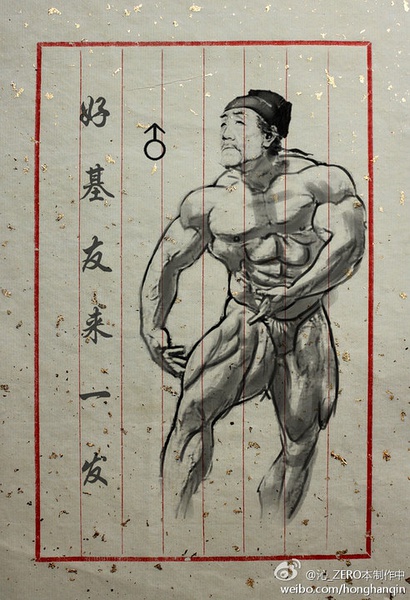 好基友来一发
♂
@沁_ZERO本制作中
weibo.com/honghanqin